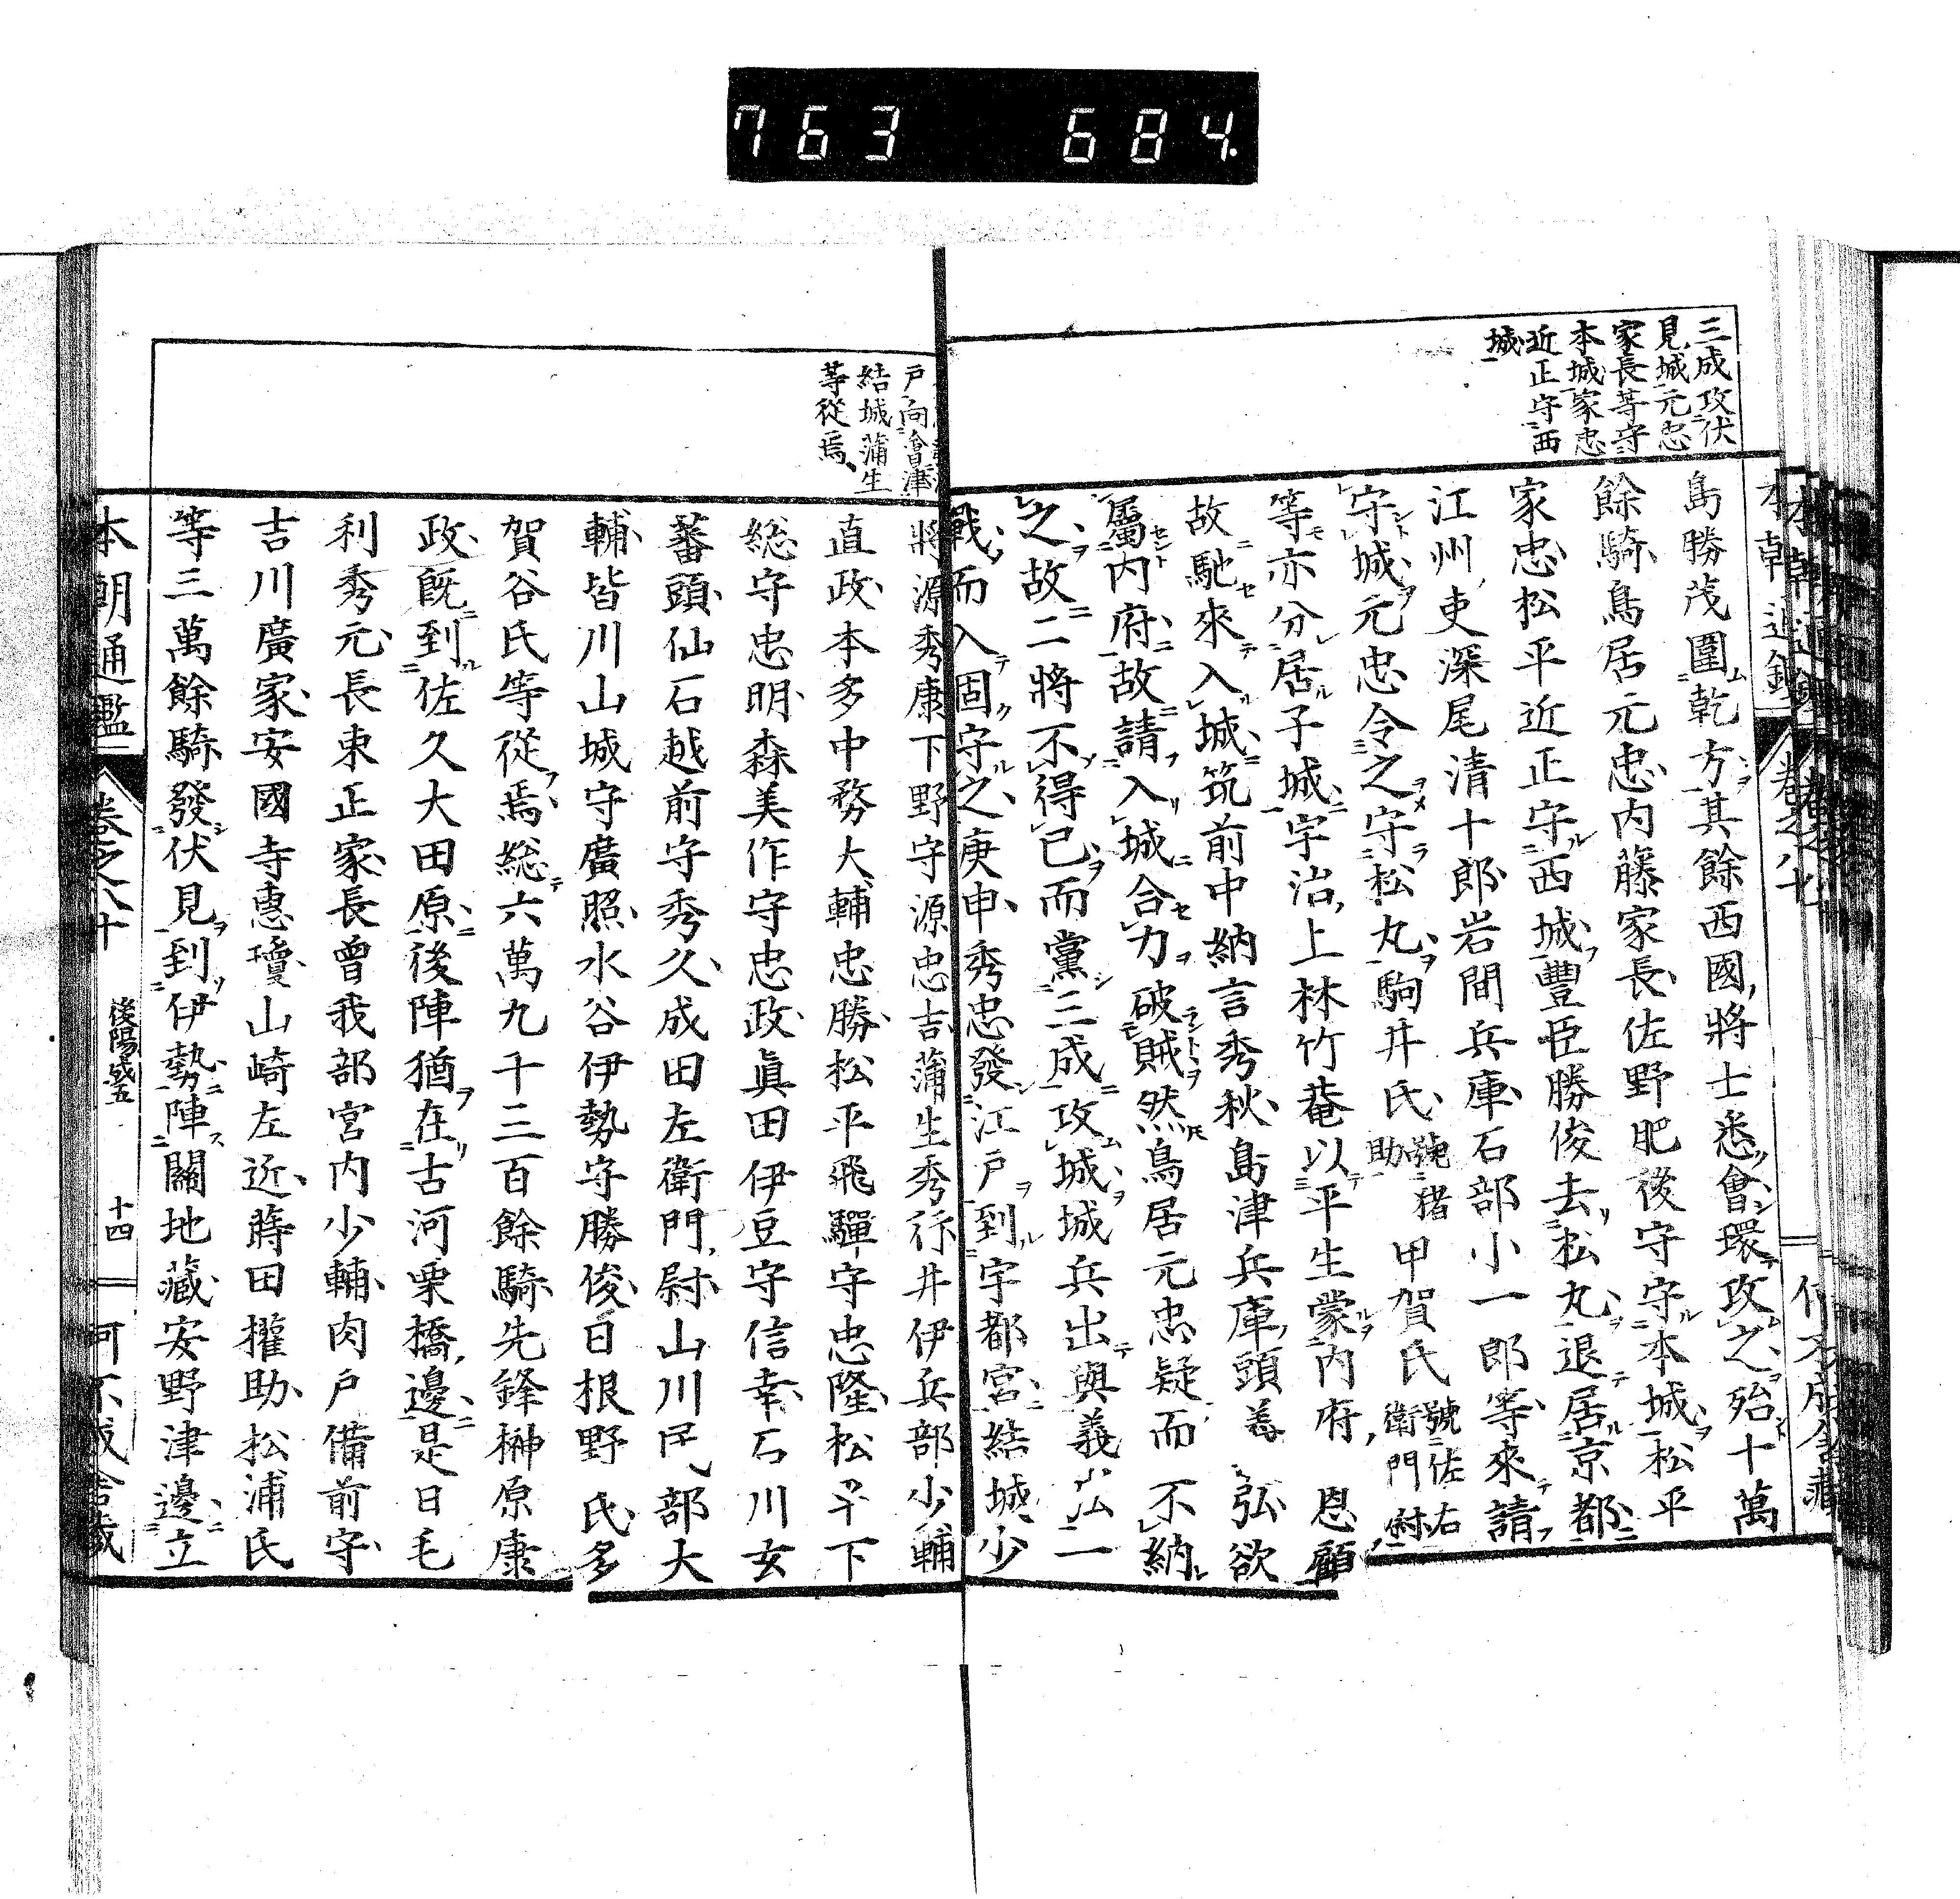 763 684.
三成攻伏
見城元忠
家長等守
本城家忠
近正守西
城
島勝茂圍乾方其餘西國將士悉會環攻之殆十萬
餘騎鳥居元忠内藤家長佐野肥後守守本城松平
家忠松平近正守西城豐臣勝俊去松丸退居京都
江州吏深尾清十郎岩間兵庫石部小一郎等來請
守城元忠令之守松丸駒井氏號猪助甲賀氏號佐右衛門尉
等亦分居子城宇治上林竹菴以平生蒙内府恩顧
故馳來入城筑前中納言秀秋島津兵庫頭義弘欲
屬内府故請入城合力破賊然鳥居元忠疑而不納
之故二將不得已而黨三成攻城城兵出與義弘一
戰而入固守之庚申秀忠發江戸到宇都宮結城少
戸向會津
結城蒲生
等從焉
將源秀康下野守源忠吉蒲生秀行井伊兵部少輔
直政本多中務大輔忠勝松平飛驒守忠隆松平下
総守忠明森美作守忠政眞田伊豆守信幸石川玄
蕃頭仙石越前守秀久成田左衛門尉山川民部大
輔皆川山城守廣照水谷伊勢守勝俊日根野氏多
賀谷氏等從焉総六萬九千三百餘騎先鋒榊原康
政既到佐久大田原後陣猶在古河栗橋邊是日毛
利秀元長束正家長曾我部宮内少輔宍戸備前守
吉川廣家安國寺惠瓊山崎左近蒔田權助松浦氏
等三萬餘騎發伏見到伊勢陣關地藏安野津邊立
本朝通鑑 卷之八十 後陽成五 十四